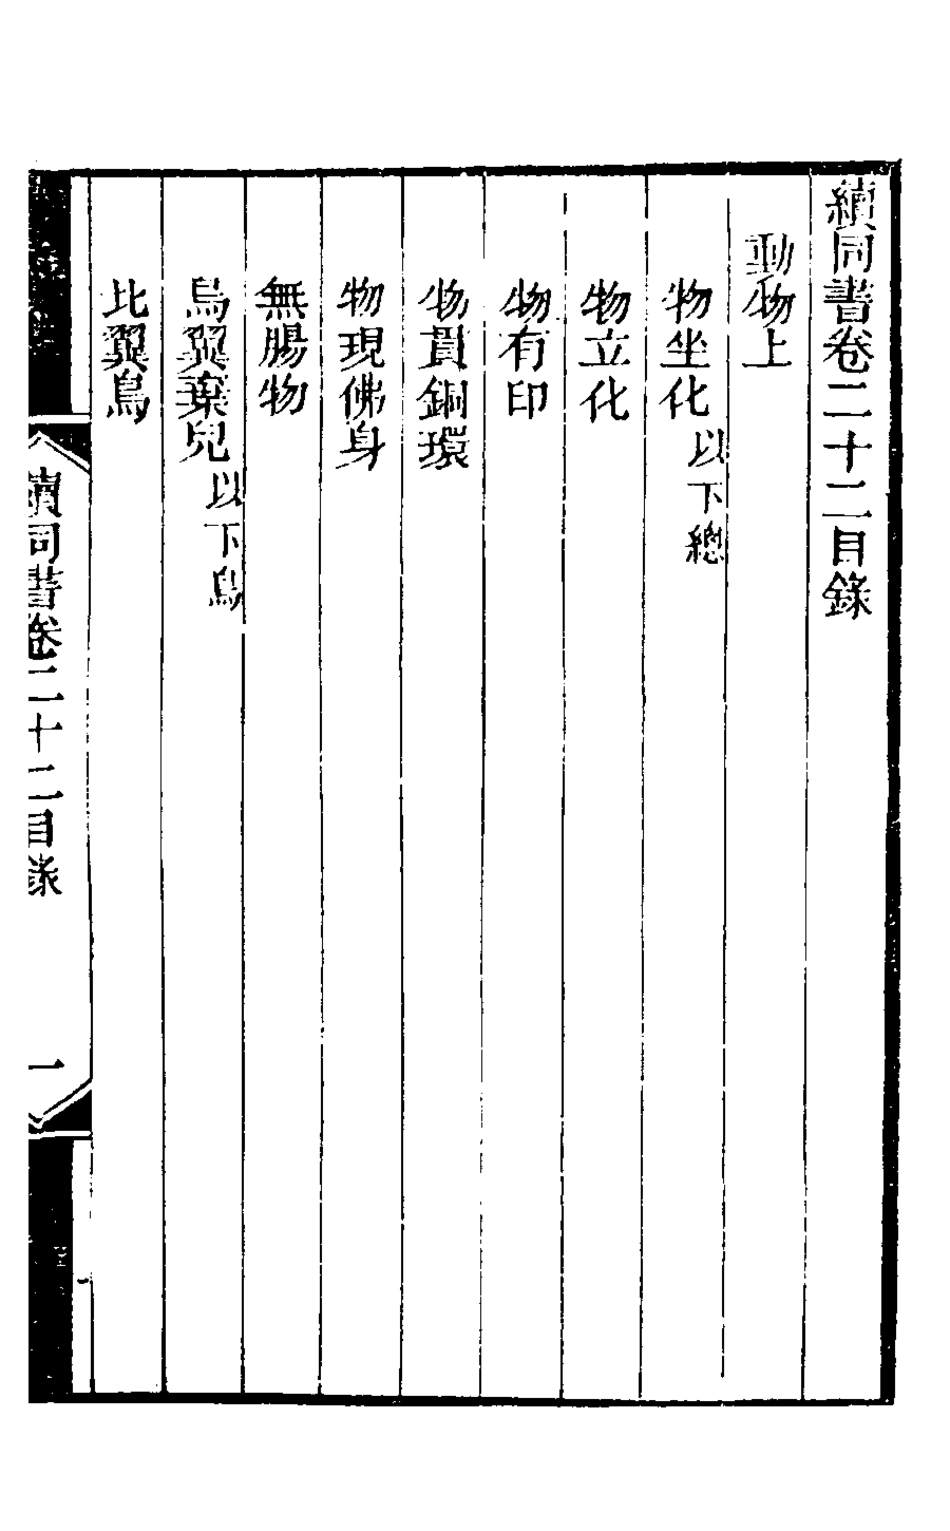 續同書卷二十二目錄
動物上
物坐化以下總
物立化
物有印
物貫銅環
物現佛身
無腸物
鳥翼棄兒以下鳥
比翼鳥
續同書卷二十二目錄
一